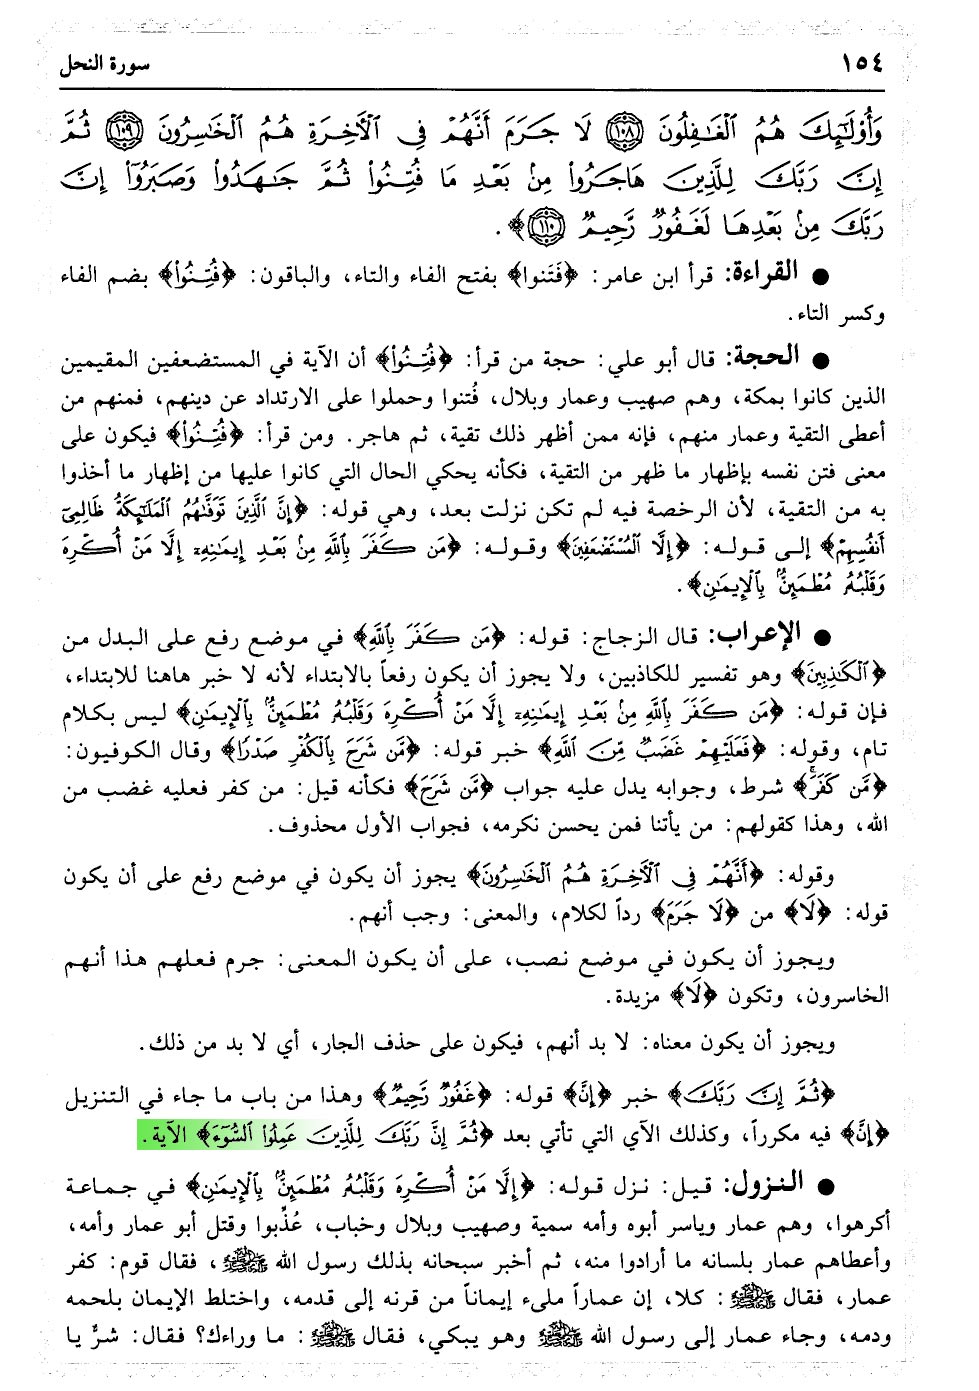 ١٥٤ سورة النحل
وَأُوْلَٰٓئِكَ هُمُ ٱلْغَٰفِلُونَ ١٠٨ لَا جَرَمَ أَنَّهُمْ فِى ٱلْأَخِرَةِ هُمُ ٱلْخَٰسِرُونَ ١٠٩ ثُمَّ
إِنَّ رَبَّكَ لِلَّذِينَ هَاجَرُواْ مِنۢ بَعْدِ مَا فُتِنُواْ ثُمَّ جَٰهَدُواْ وَصَبَرُوٓاْ إِنَّ
رَبَّكَ مِنۢ بَعْدِهَا لَغَفُورٌ رَّحِيمٌ ١١٠﴾.
● القراءة: قرأ ابن عامر: ﴿فَتَنوا﴾ بفتح الفاء والتاء، والباقون: ﴿فُتِنُواْ﴾ بضم الفاء
وكسر التاء.
● الحجة: قال أبو علي: حجة من قرأ: ﴿فُتِنُواْ﴾ أن الآية في المستضعفين المقيمين
الذين كانوا بمكة، وهم صهيب وعمار وبلال، فُتنوا وحملوا على الارتداد عن دينهم، فمنهم من
أعطى التقية وعمار منهم، فإنه ممن أظهر ذلك تقية، ثم هاجر. ومن قرأ: ﴿فُتِنُواْ﴾ فيكون على
معنى فتن نفسه بإظهار ما ظهر من التقية، فكأنه يحكي الحال التي كانوا عليها من إظهار ما أخذوا
به من التقية، لأن الرخصة فيه لم تكن نزلت بعد، وهي قوله: ﴿إِنَّ ٱلَّذِينَ تَوَفَّىٰهُمُ ٱلْمَلَٰٓئِكَةُ ظَالِمِىٓ
أَنفُسِهِمْ﴾ إلى قوله: ﴿إِلَّا ٱلْمُسْتَضْعَفِينَ﴾ وقوله: ﴿مَن كَفَرَ بِٱللَّهِ مِنۢ بَعْدِ إِيمَٰنِهِۦٓ إِلَّا مَنْ أُكْرِهَ
وَقَلْبُهُۥ مُطْمَئِنٌّۢ بِٱلْإِيمَٰنِ﴾.
● الإعراب: قال الزجاج: قوله: ﴿مَن كَفَرَ بِٱللَّهِ﴾ في موضع رفع على البدل من
﴿ٱلْكَٰذِبِينَ﴾ وهو تفسير للكاذبين، ولا يجوز أن يكون رفعاً بالابتداء لأنه لا خبر هاهنا للابتداء،
فإن قوله: ﴿مَن كَفَرَ بِٱللَّهِ مِنۢ بَعْدِ إِيمَٰنِهِۦٓ إِلَّا مَنْ أُكْرِهَ وَقَلْبُهُۥ مُطْمَئِنٌّۢ بِٱلْإِيمَٰنِ﴾ ليس بكلام
تام، وقوله: ﴿فَعَلَيْهِمْ غَضَبٌ مِّنَ ٱللَّهِ﴾ خبر قوله: ﴿مَّن شَرَحَ بِٱلْكُفْرِ صَدْرًا﴾ وقال الكوفيون:
﴿مَّن كَفَرَ﴾ شرط، وجوابه يدل عليه جواب ﴿مَّن شَرَحَ﴾ فكأنه قيل: من كفر فعليه غضب من
الله، وهذا كقولهم: من يأتنا فمن يحسن نكرمه، فجواب الأول محذوف.
وقوله: ﴿أَنَّهُمْ فِى ٱلْأَخِرَةِ هُمُ ٱلْخَٰسِرُونَ﴾ يجوز أن يكون في موضع رفع على أن يكون
قوله: ﴿لَا﴾ من ﴿لَا جَرَمَ﴾ رداً لكلام، والمعنى: وجب أنهم.
ويجوز أن يكون في موضع نصب، على أن يكون المعنى: جرم فعلهم هذا أنهم
الخاسرون، وتكون ﴿لَا﴾ مزيدة.
ويجوز أن يكون معناه: لا بد أنهم، فيكون على حذف الجار، أي لا بد من ذلك.
﴿ثُمَّ إِنَّ رَبَّكَ﴾ خبر ﴿إِنَّ﴾ قوله: ﴿غَفُورٌ رَّحِيمٌ﴾ وهذا من باب ما جاء في التنزيل
﴿إِنَّ﴾ فيه مكرراً، وكذلك الآي التي تأتي بعد ﴿ثُمَّ إِنَّ رَبَّكَ لِلَّذِينَ عَمِلُواْ ٱلسُّوٓءَ﴾ الآية.
● النزول: قيل: نزل قوله: ﴿إِلَّا مَنْ أُكْرِهَ وَقَلْبُهُۥ مُطْمَئِنٌّۢ بِٱلْإِيمَٰنِ﴾ في جماعة
أكرهوا، وهم عمار وياسر أبوه وأمه سمية وصهيب وبلال وخباب، عُذِّبوا وقتل أبو عمار وأمه،
وأعطاهم عمار بلسانه ما أرادوا منه، ثم أخبر سبحانه بذلك رسول الله ﷺ، فقال قوم: كفر
عمار، فقال ﷺ: كلا، إن عماراً ملىء إيماناً من قرنه إلى قدمه، واختلط الإيمان بلحمه
ودمه، وجاء عمار إلى رسول الله ﷺ وهو يبكي، فقال ﷺ: ما وراءك؟ فقال: شرٌّ يا